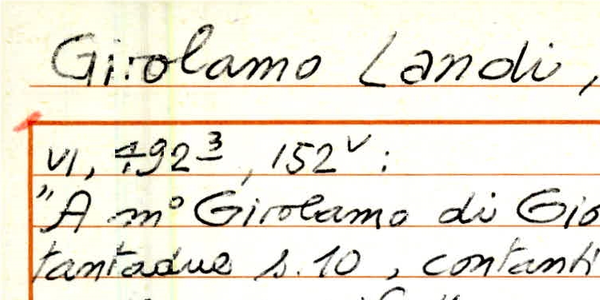 Girolamo Landi,
VI, 492³, 152ᵛ:
"A m° Girolamo di Gio
tantadue s. 10, contanti